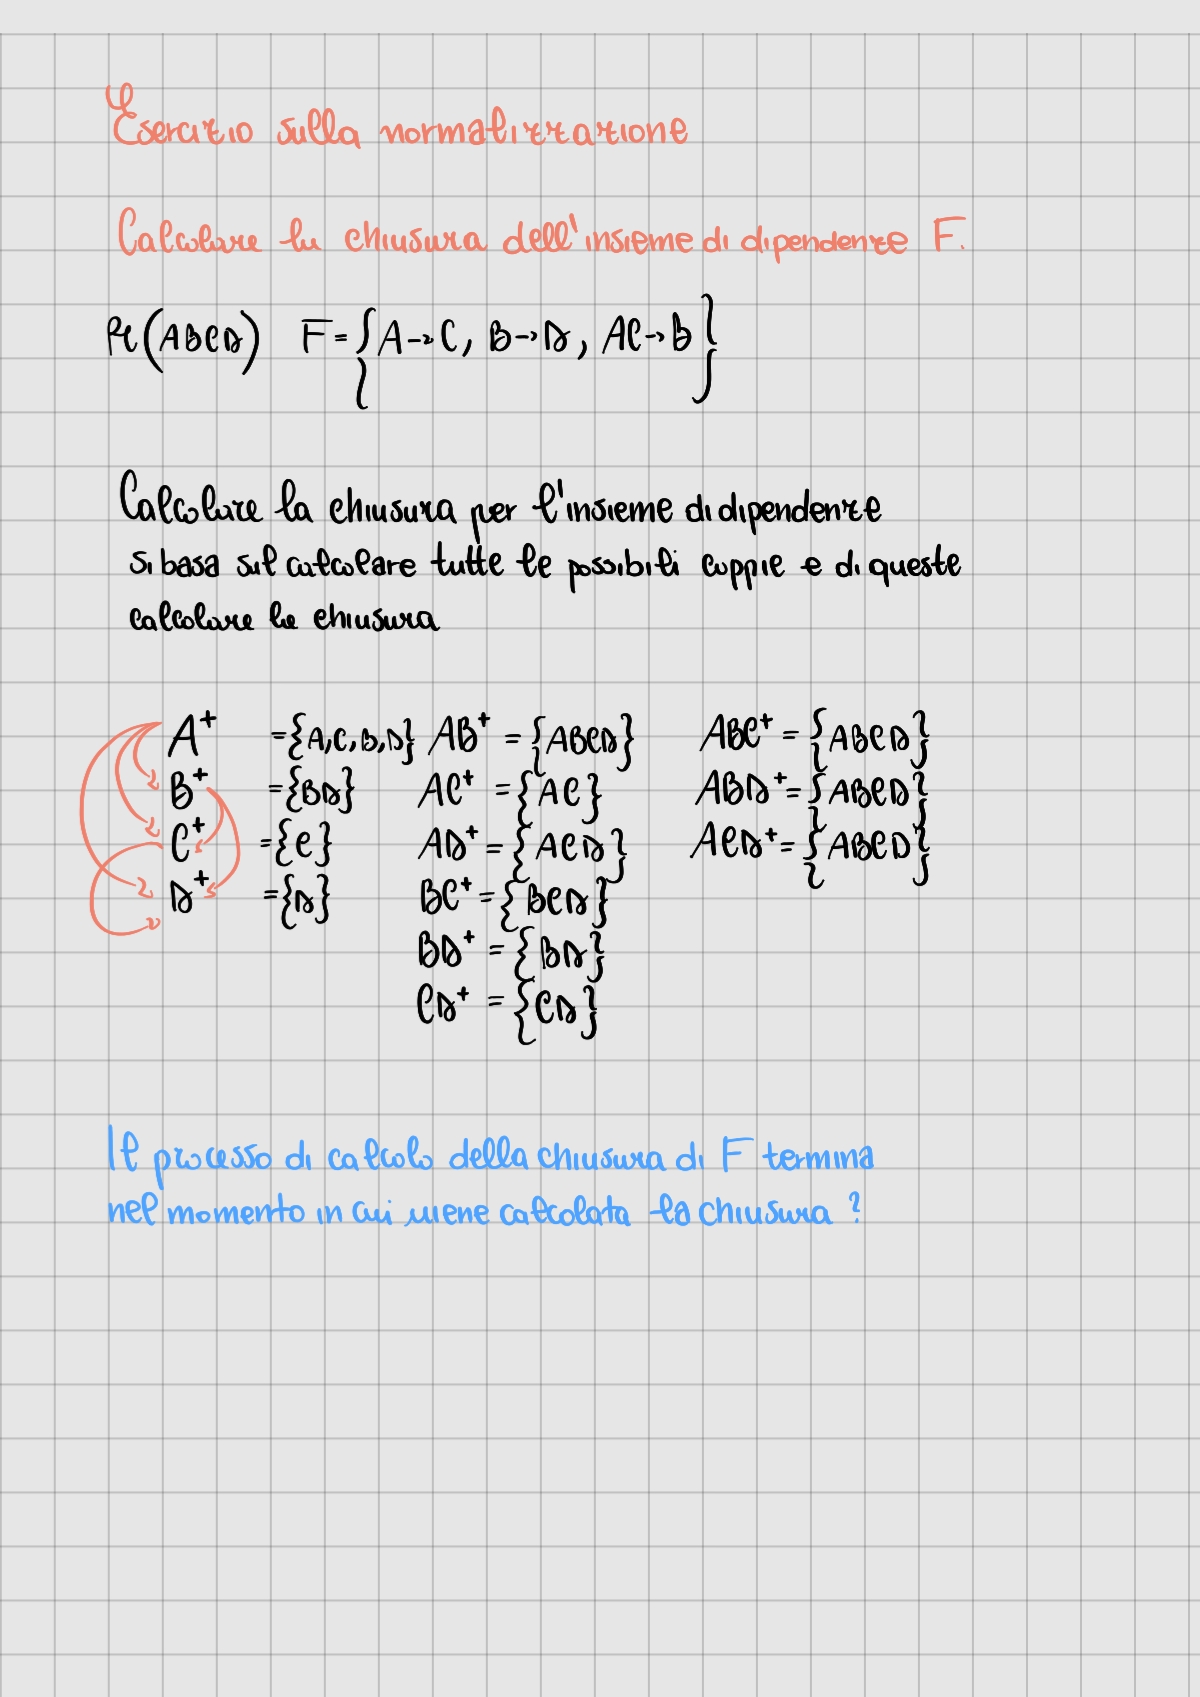 Esercizio sulla normalizzazione
Calcolare la chiusura dell'insieme di dipendenze F.
R(ABCD) F = {A→C, B→D, AC→B}
Calcolare la chiusura per l'insieme di dipendenze
si basa sul calcolare tutte le possibili coppie e di queste
calcolare la chiusura
A⁺ = {A,C,B,D} AB⁺ = {ABCD} ABC⁺ = {ABCD}
B⁺ = {BD} AC⁺ = {AC} ABD⁺ = {ABCD}
C⁺ = {C} AD⁺ = {ACD} ACD⁺ = {ABCD}
D⁺ = {D} BC⁺ = {BCD}
BD⁺ = {BD}
CD⁺ = {CD}
Il processo di calcolo della chiusura di F termina
nel momento in cui viene calcolata la chiusura ?